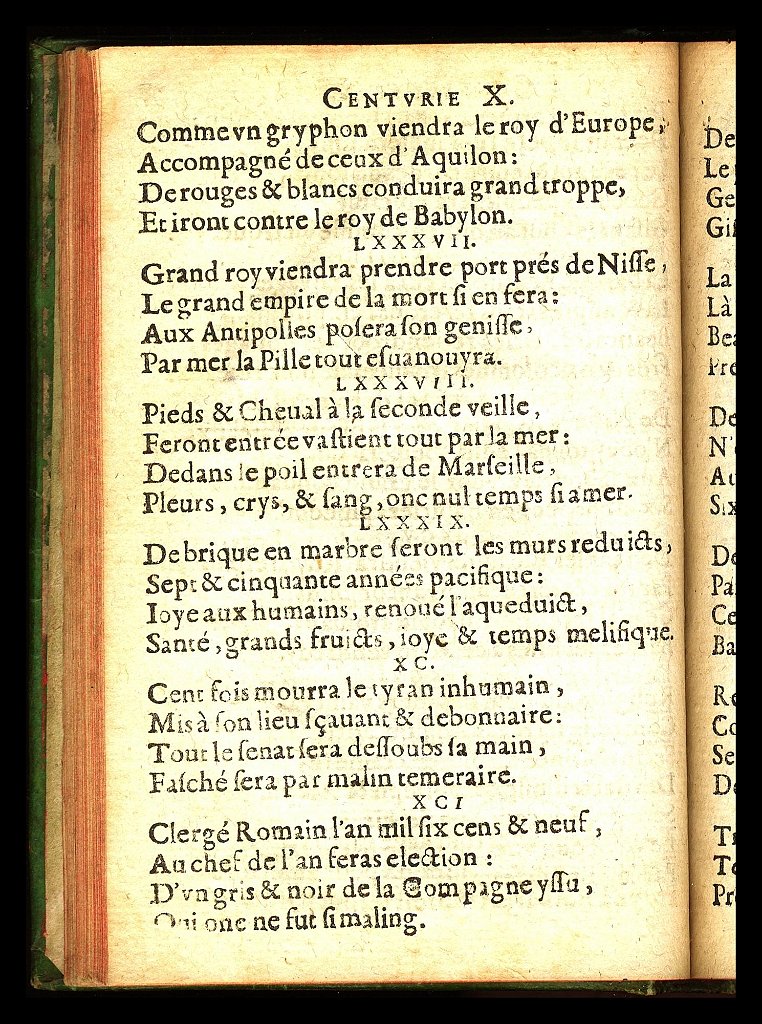 CENTVRIE X.
Comme vn gryphon viendra le roy d'Europe,
Accompagné de ceux d'Aquilon:
De rouges & blancs conduira grand troppe,
Et iront contre le roy de Babylon.
LXXXVII.
Grand roy viendra prendre port prés de Niſſe,
Le grand empire de la mort ſi en fera:
Aux Antipolles poſera ſon geniſſe,
Par mer la Pille tout eſuanouyra.
LXXXVIII.
Pieds & Cheual à la ſeconde veille,
Feront entrée vaſtient tout par la mer:
Dedans le poil entrera de Marſeille,
Pleurs, crys, & ſang, onc nul temps ſi amer.
LXXXIX.
De brique en marbre ſeront les murs reduicts,
Sept & cinquante années pacifique:
Ioye aux humains, renoué l'aqueduict,
Santé, grands fruicts, ioye & temps melifique.
XC.
Cent fois mourra le tyran inhumain,
Mis à ſon lieu ſçauant & debonnaire:
Tout le ſenat ſera deſſoubs ſa main,
Faſché ſera par malin temeraire.
XCI
Clergé Romain l'an mil ſix cens & neuf,
Au chef de l'an feras election:
D'vn gris & noir de la Compagne yſſu,
Qui onc ne fut ſi maling.
De
Le
Ge
Giſ
La
Là
Bea
Pre
De
N'
Au
Six
De
Pa
Ce
Ba
Re
Co
Se
De
Tr
To
Pr